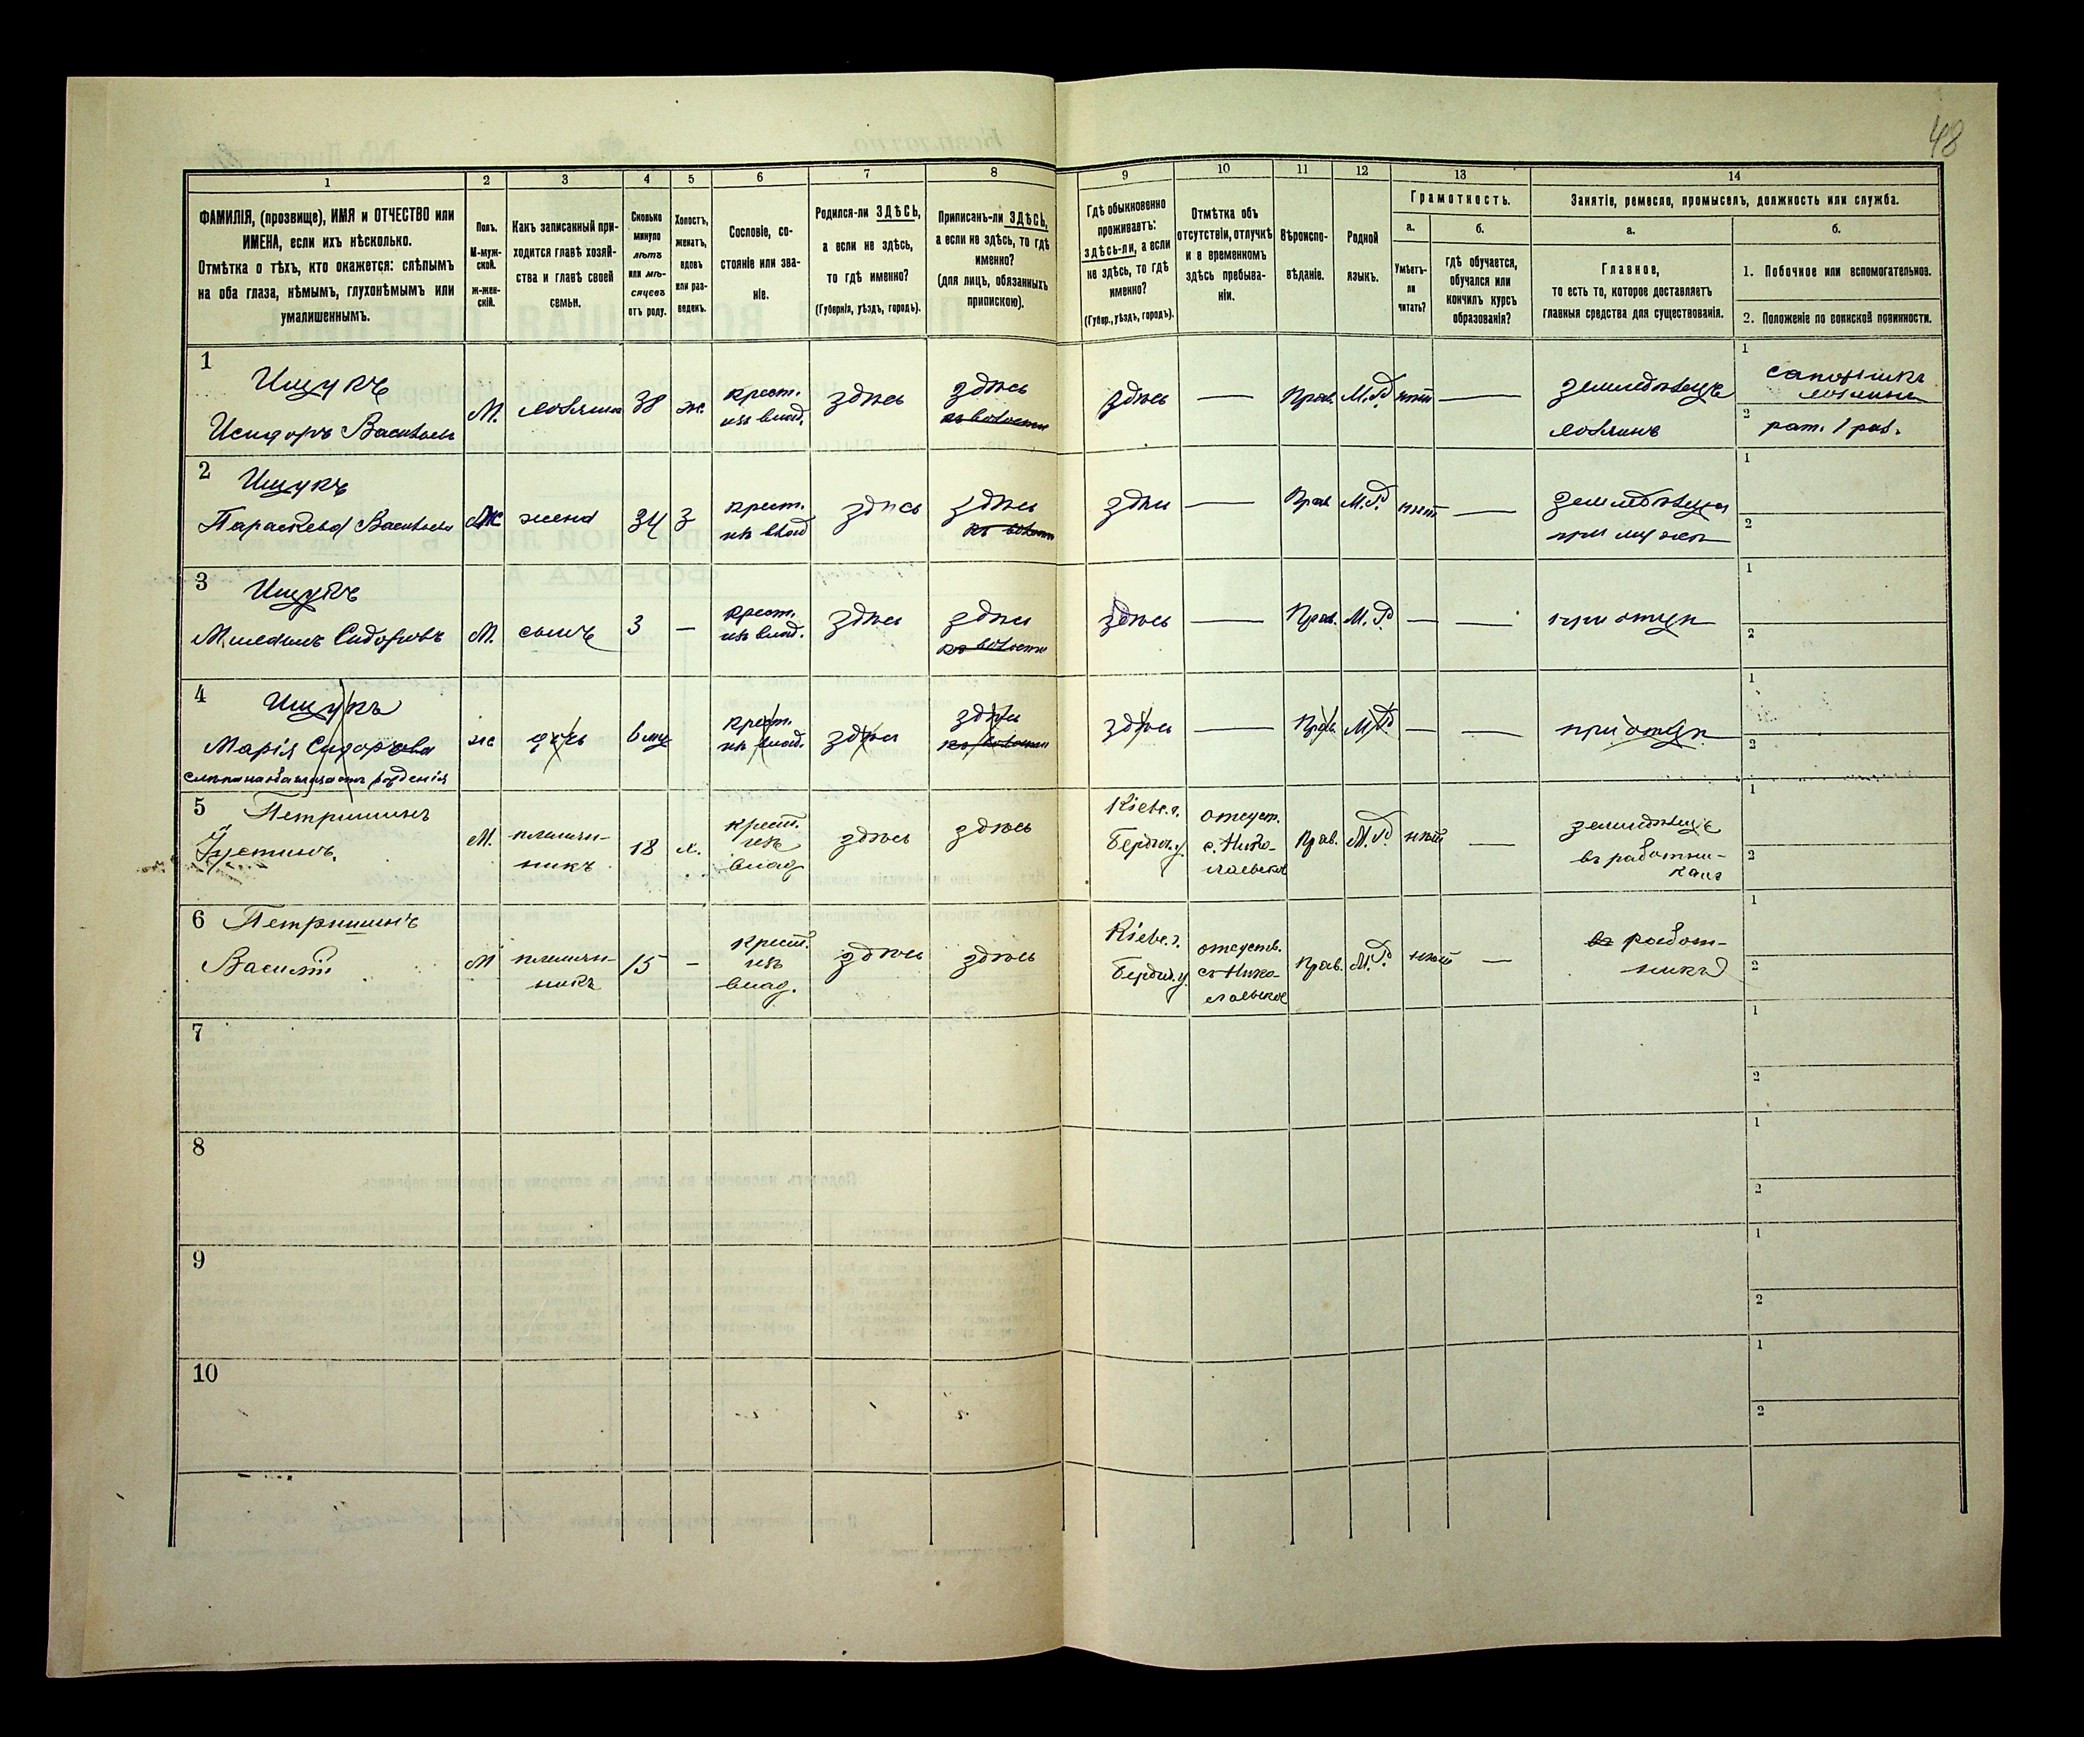 48
1
2
3
4
5
6
7
8
9
10
11
12
13
14
ФАМИЛІЯ, (прозвище), ИМЯ и ОТЧЕСТВО или
ИМЕНА, если ихъ нѣсколько.
Отмѣтка о тѣхъ, кто окажется: слѣпымъ
на оба глаза, нѣмымъ, глухонѣмымъ или
умалишеннымъ.
Полъ.
М-муж-
ской.
ж-жен-
скій.
Какъ записанный при-
ходится главѣ хозяй-
ства и главѣ своей
семьи.
Сколько
минуло
лѣтъ
или мѣ-
сяцевъ
отъ роду.
Холостъ,
женатъ,
вдовъ
или раз-
веденъ.
Сословіе, со-
стояніе или зва-
ніе.
Родился-ли ЗДѢСЬ,
а если не здѣсь,
то гдѣ именно?
(Губернія, уѣздъ, городъ).
Приписанъ-ли ЗДѢСЬ,
а если не здѣсь, то гдѣ
именно?
(для лицъ, обязанныхъ
припискою).
Гдѣ обыкновенно
проживаетъ:
здѣсь-ли, а если
не здѣсь, то гдѣ
именно?
(Губер., уѣздъ, городъ).
Отмѣтка объ
отсутствіи, отлучкѣ
и о временномъ
здѣсь пребыва-
ніи.
Вѣроиспо-
вѣданіе.
Родной
языкъ.
Грамотность.
а.
Умѣетъ-
ли
читать?
б.
гдѣ обучается,
обучался или
кончилъ курсъ
образованія?
Занятіе, ремесло, промыселъ, должность или служба.
а.
Главное,
то есть то, которое доставляетъ
главныя средства для существованія.
б.
1. Побочное или вспомогательное.
2. Положеніе по воинской повинности.
1
Ищукъ
Исидоръ Васильевъ
М.
хозяинъ
38
ж.
крест.
изъ влад.
здѣсь
здѣсь
къ волости
здѣсь
—
Прав.
М.Р.
нѣтъ
—
земледѣлецъ
хозяинъ
1
сапожникъ
хозяинъ
2
рат. 1 раз.
2
Ищукъ
Параскева Васильева
ж
жена
34
з
крест.
изъ влад
здѣсь
здѣсь
къ волости
здѣсь
—
Прав
М.Р.
нѣтъ
—
земледѣлица
при мужѣ
1
2
3
Ищукъ
Михаилъ Сидоровъ
М.
сынъ
3
—
крест.
изъ влад.
здѣсь
здѣсь
къ волости
здѣсь
—
Прав.
М.Р.
—
—
при отцѣ
1
2
4
Ищукъ
Марія Сидорова
слѣпа на оба глаза отъ рожденія
ж
дочь
6 мц
крест.
изъ влад.
здѣсь
здѣсь
къ волости
здѣсь
—
Прав.
М.Р.
—
—
при отцѣ
1
2
5
Петришинъ
Іустинъ.
М.
племян-
никъ
18
х.
крест.
изъ
влад
здѣсь
здѣсь
Кіевс. г.
Бердич. у.
отсуст.
с. Нико-
лаевское
Прав.
М.Р.
нѣтъ
—
земледѣлецъ
въ работни-
кахъ
1
2
6
Петришинъ
Василій
М
племян-
никъ
15
—
крест.
изъ
влад.
здѣсь
здѣсь
Кіевс. г.
Бердич. у.
отсуств.
с. Нико-
лаевское
Прав.
М.Р.
нѣтъ
—
въ работ-
никъ
1
2
7
1
2
8
1
2
9
1
2
10
1
2